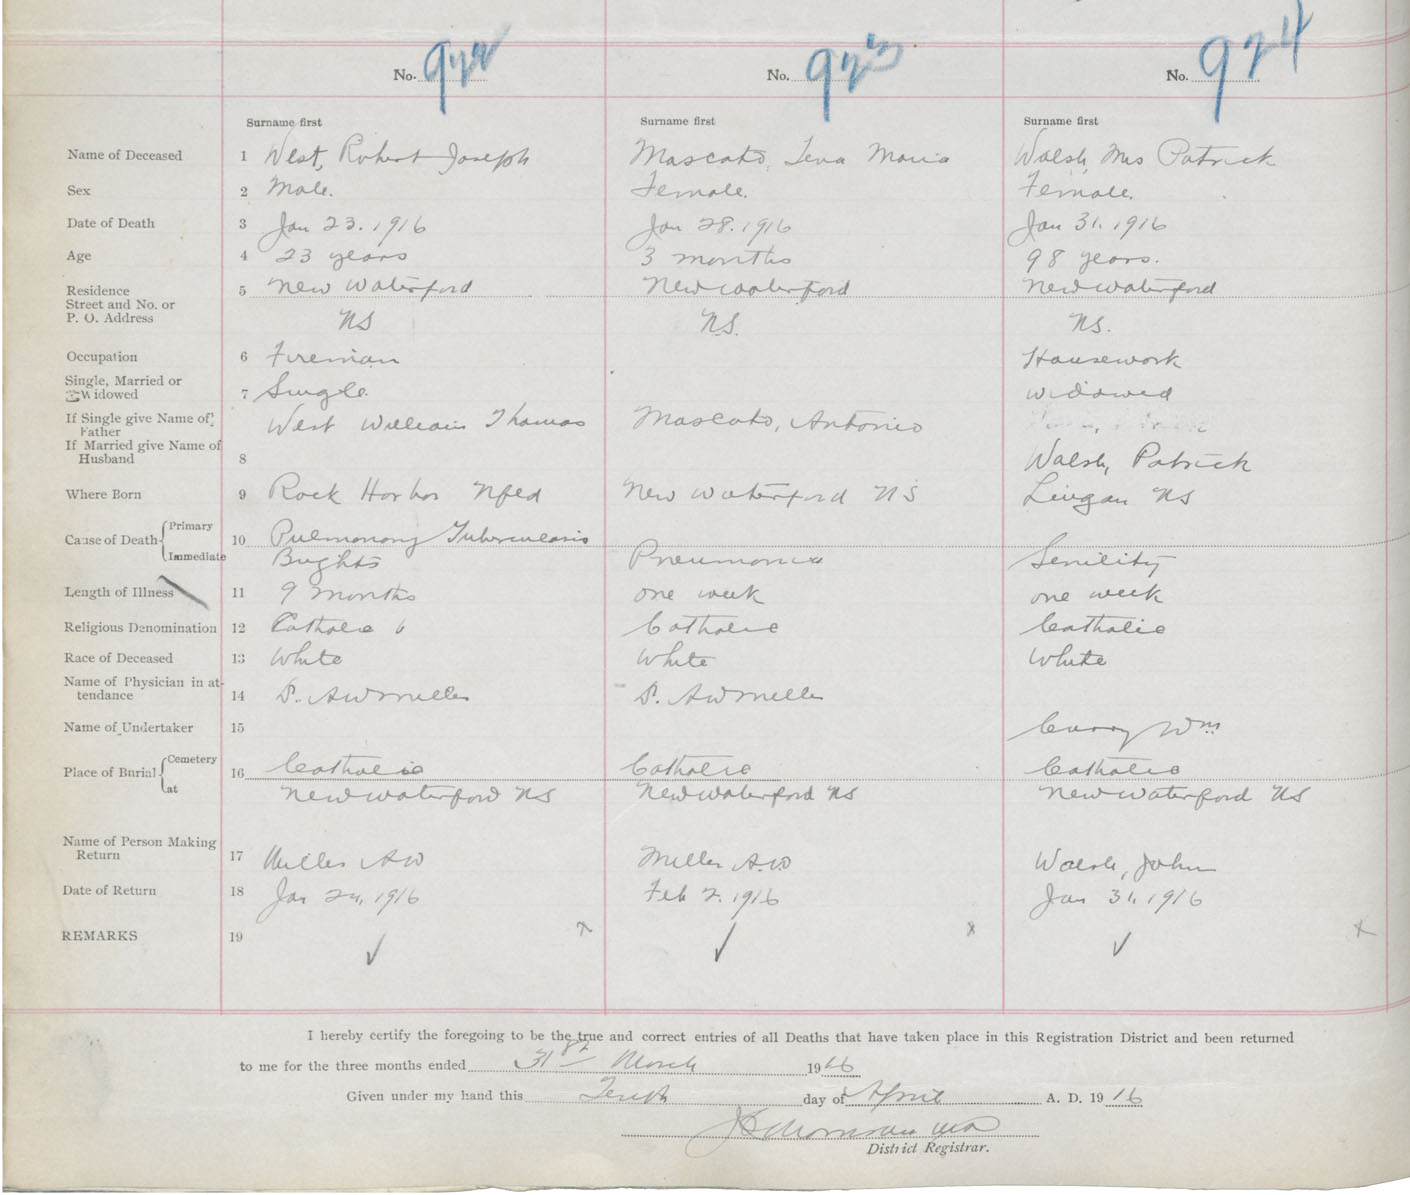 No. 922 No. 923 No. 924
Surname first Surname first Surname first
Name of Deceased 1 West, Robert Joseph Mascato, Maria Walsh, Mrs Patrick
Sex 2 Male. Female. Female.
Date of Death 3 Jan 23. 1916 Jan 28. 1916 Jan 31. 1916
Age 4 23 years 3 months 98 years.
Residence 5 New Waterford New Waterford New Waterford
Street and No. or
P. O. Address NS N.S. NS.
Occupation 6 Fireman Housework
Single, Married or
Widowed 7 Single. Widowed
If Single give Name of
Father West William Thomas Mascato, Antonio
If Married give Name of
Husband 8 Walsh, Patrick
Where Born 9 Rock Harbor Nfld New Waterford NS Lingan NS
Cause of Death Primary 10 Pulmonary Tuberculosis
Immediate Brights Pneumonia Senility
Length of Illness 11 9 months one week one week
Religious Denomination 12 Catholic Catholic Catholic
Race of Deceased 13 White White White
Name of Physician in at-
tendance 14 A W Miller A W Miller
Name of Undertaker 15 Curry Wm
Place of Burial Cemetery 16 Catholic Catholic Catholic
at New Waterford NS New Waterford NS New Waterford NS
Name of Person Making
Return 17 Miller A W Miller A. W. Walsh, John
Date of Return 18 Jan 24, 1916 Feb 2. 1916 Jan 31, 1916
REMARKS 19 ✓ x ✓ x ✓ x
I hereby certify the foregoing to be the true and correct entries of all Deaths that have taken place in this Registration District and been returned
to me for the three months ended 31st March 1916
Given under my hand this Tenth day of April A. D. 1916
District Registrar.